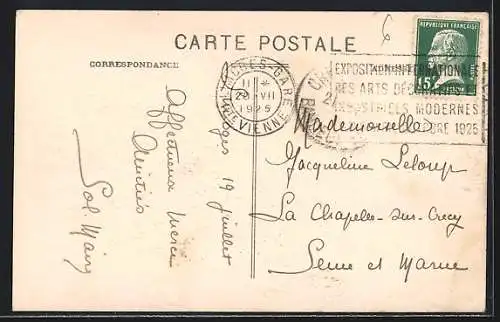 CARTE POSTALE
CORRESPONDANCE
RÉPUBLIQUE FRANÇAISE
LIMOGES-GARE
11 *
20 VII
1925
HTE VIENNE
EXPOSITION INTERNATIONALE
DES ARTS DÉCORATIFS
INDUSTRIELS MODERNES
1925
19 juillet
Affectueux merci
Amitiés
Mademoiselle
Jacqueline Leloup
La Chapelle-sur-Crecy
Seine et Marne